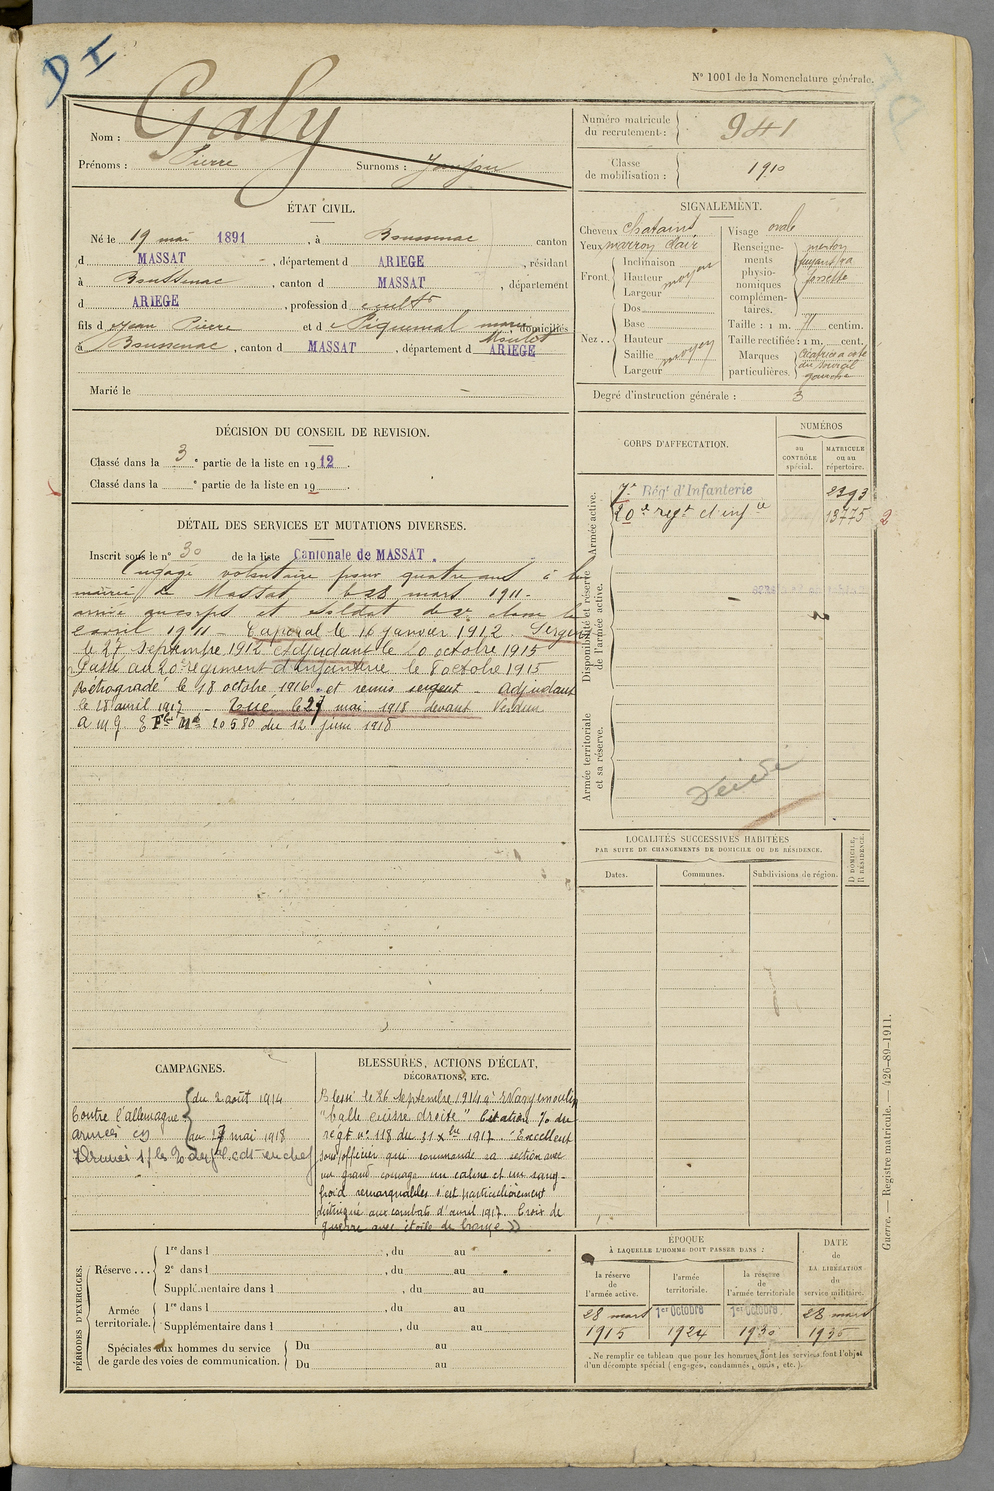 DI
N° 1001 de la Nomenclature générale.
Nom : Galy
Prénoms : Pierre Surnoms :
Numéro matricule du recrutement : 941
Classe de mobilisation : 1910
ÉTAT CIVIL.
Né le 19 mai 1891, à Boussenac canton
d MASSAT, département d ARIEGE, résidant
à Boussenac, canton d MASSAT, département
d ARIEGE, profession d cultr
fils d Jean Pierre et d Piquemal marie domiciliés
à Boussenac, canton d MASSAT, département d ARIEGE
Marié le
SIGNALEMENT.
Cheveux Chatains
Yeux marron clair
Front. Inclinaison
Hauteur moyen
Largeur
Nez.. Dos
Base
Hauteur
Saillie moyen
Largeur
Visage ovale
Renseignements physionomiques complémentaires. menton fuyant fossette
Taille : 1 m. 71 centim.
Taille rectifiée : 1 m. cent.
Marques particulières. Cicatrice à coté du sourcil gauche
Degré d'instruction générale : 3
DÉCISION DU CONSEIL DE REVISION.
Classé dans la 3 e partie de la liste en 1912.
Classé dans la e partie de la liste en 19 .
DÉTAIL DES SERVICES ET MUTATIONS DIVERSES.
Inscrit sous le n° 30 de la liste Cantonale de MASSAT.
Engagé volontaire pour quatre ans à la
mairie de Massat le 28 mars 1911.
arrivé au corps et soldat de 2e classe le
avril 1911 - Caporal le 16 janvier 1912. Sergent
le 27 septembre 1912 Adjudant le 10 octobre 1915
Passé au 20e régiment d'Infanterie le 8 octobre 1915
Rétrogradé le 18 octobre 1916 et remis sergent - Adjudant
le 28 avril 1917 - Tué le 27 mai 1918 devant Verdun
A M G 20580 du 12 juin 1918
CORPS D'AFFECTATION.
NUMÉROS
au CONTRÔLE spécial.
MATRICULE ou au répertoire.
Armée active.
7e Régt d'Infanterie 2393
20e regt d'infie 13775 2
Disponibilité et réserve de l'armée active.
Armée territoriale et sa réserve.
Décédé
LOCALITÉS SUCCESSIVES HABITÉES
PAR SUITE DE CHANGEMENTS DE DOMICILE OU DE RÉSIDENCE.
Dates. Communes. Subdivisions de région. D DOMICILE, R RÉSIDENCE.
CAMPAGNES.
Contre l'allemagne du 2 août 1914
au 27 mai 1918
BLESSURES, ACTIONS D'ÉCLAT, DÉCORATIONS, ETC.
Blessé le 26 septembre 1914 à
"balle cuisse droite" Citation % du
régt n° 118 du 31 Xbre 1917. "Excellent
sous/officier qui commande sa section avec
un grand courage un calme et un sang-
froid remarquables s'est particulièrement
distingué aux combats d'avril 1917. Croix de
guerre avec étoile de bronze"
PÉRIODES D'EXERCICES.
Réserve ... 1re dans l , du au
2e dans l , du au
Supplémentaire dans l , du au
Armée territoriale. 1re dans l , du au
Supplémentaire dans l , du au
Spéciales aux hommes du service de garde des voies de communication. Du au
Du au
ÉPOQUE
À LAQUELLE L'HOMME DOIT PASSER DANS :
la réserve de l'armée active. 28 mars 1915
l'armée territoriale. 1er Octobre 1924
la réserve de l'armée territoriale 1er Octobre 1930
DATE de LA LIBÉRATION du service militaire. 28 mars 1936
Ne remplir ce tableau que pour les hommes dont les services font l'objet
d'un décompte spécial (engagés, condamnés, omis, etc.).
Guerre. — Registre matricule. — 426-89-1911.